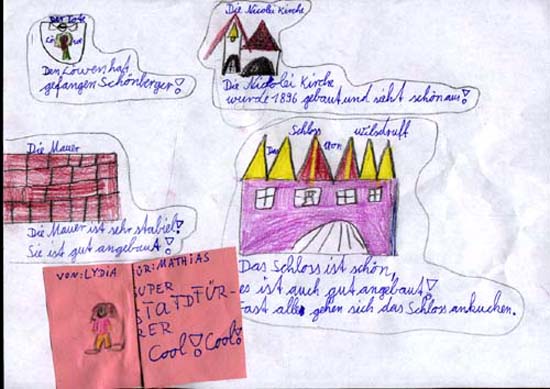 Der Tote
Lö we
Den Löwen hat
gefangen Schönberger!
Die Nicolei Kirche
Die Nickolei Kirche
wurde 1896 gebaut, und sieht schön aus!
Die Mauer
Die Mauer ist sehr stabiel!
Sie ist gut angebaut!
Das Schloss von wilsdruff
Das Schloss ist schön,
es ist auch gut angebaut!
Fast alle gehen sich das Schloss ankucken.
VON: LYDIA
ÜR: MATHIAS
SUPER
STATDFÜR-
RER
Cool! Cool!